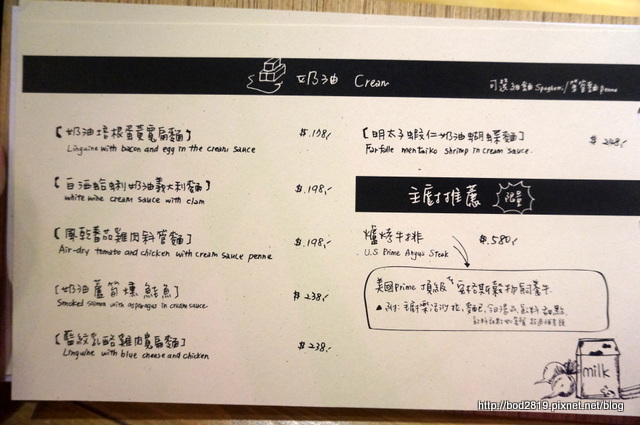 奶油 Cream
可選細麵 Spaghetti/筆管麵 penne
【奶油培根蛋蔓寬扁麵】 $.198,-
Linguine with bacon and egg in the cream sauce
【白酒蛤蜊奶油義大利麵】 $.198,-
white wine cream sauce with clam
【風乾番茄雞肉斜管麵】 $.198,-
Air-dry tomato and chicken with cream sauce penne
【奶油蘆筍燻鮭魚】 $ 238,-
Smoked salmon with asparagus in cream sauce
【藍紋乳酪雞肉寬扁麵】 $ 238,-
Linguine with blue cheese and chicken
【明太子蝦仁奶油蝴蝶麵】 $ 248,-
Farfalle mentaiko shrimp in cream sauce.
主廚推薦 限量
爐烤牛排 $.580,-
U.S Prime Angus Steak
美國Prime 頂級"安格斯穀物飼養牛
▲附:主廚靈活沙拉、麵包、今日湯品、飲料、甜點
milk
http://bod2819.pixnet.net/blog